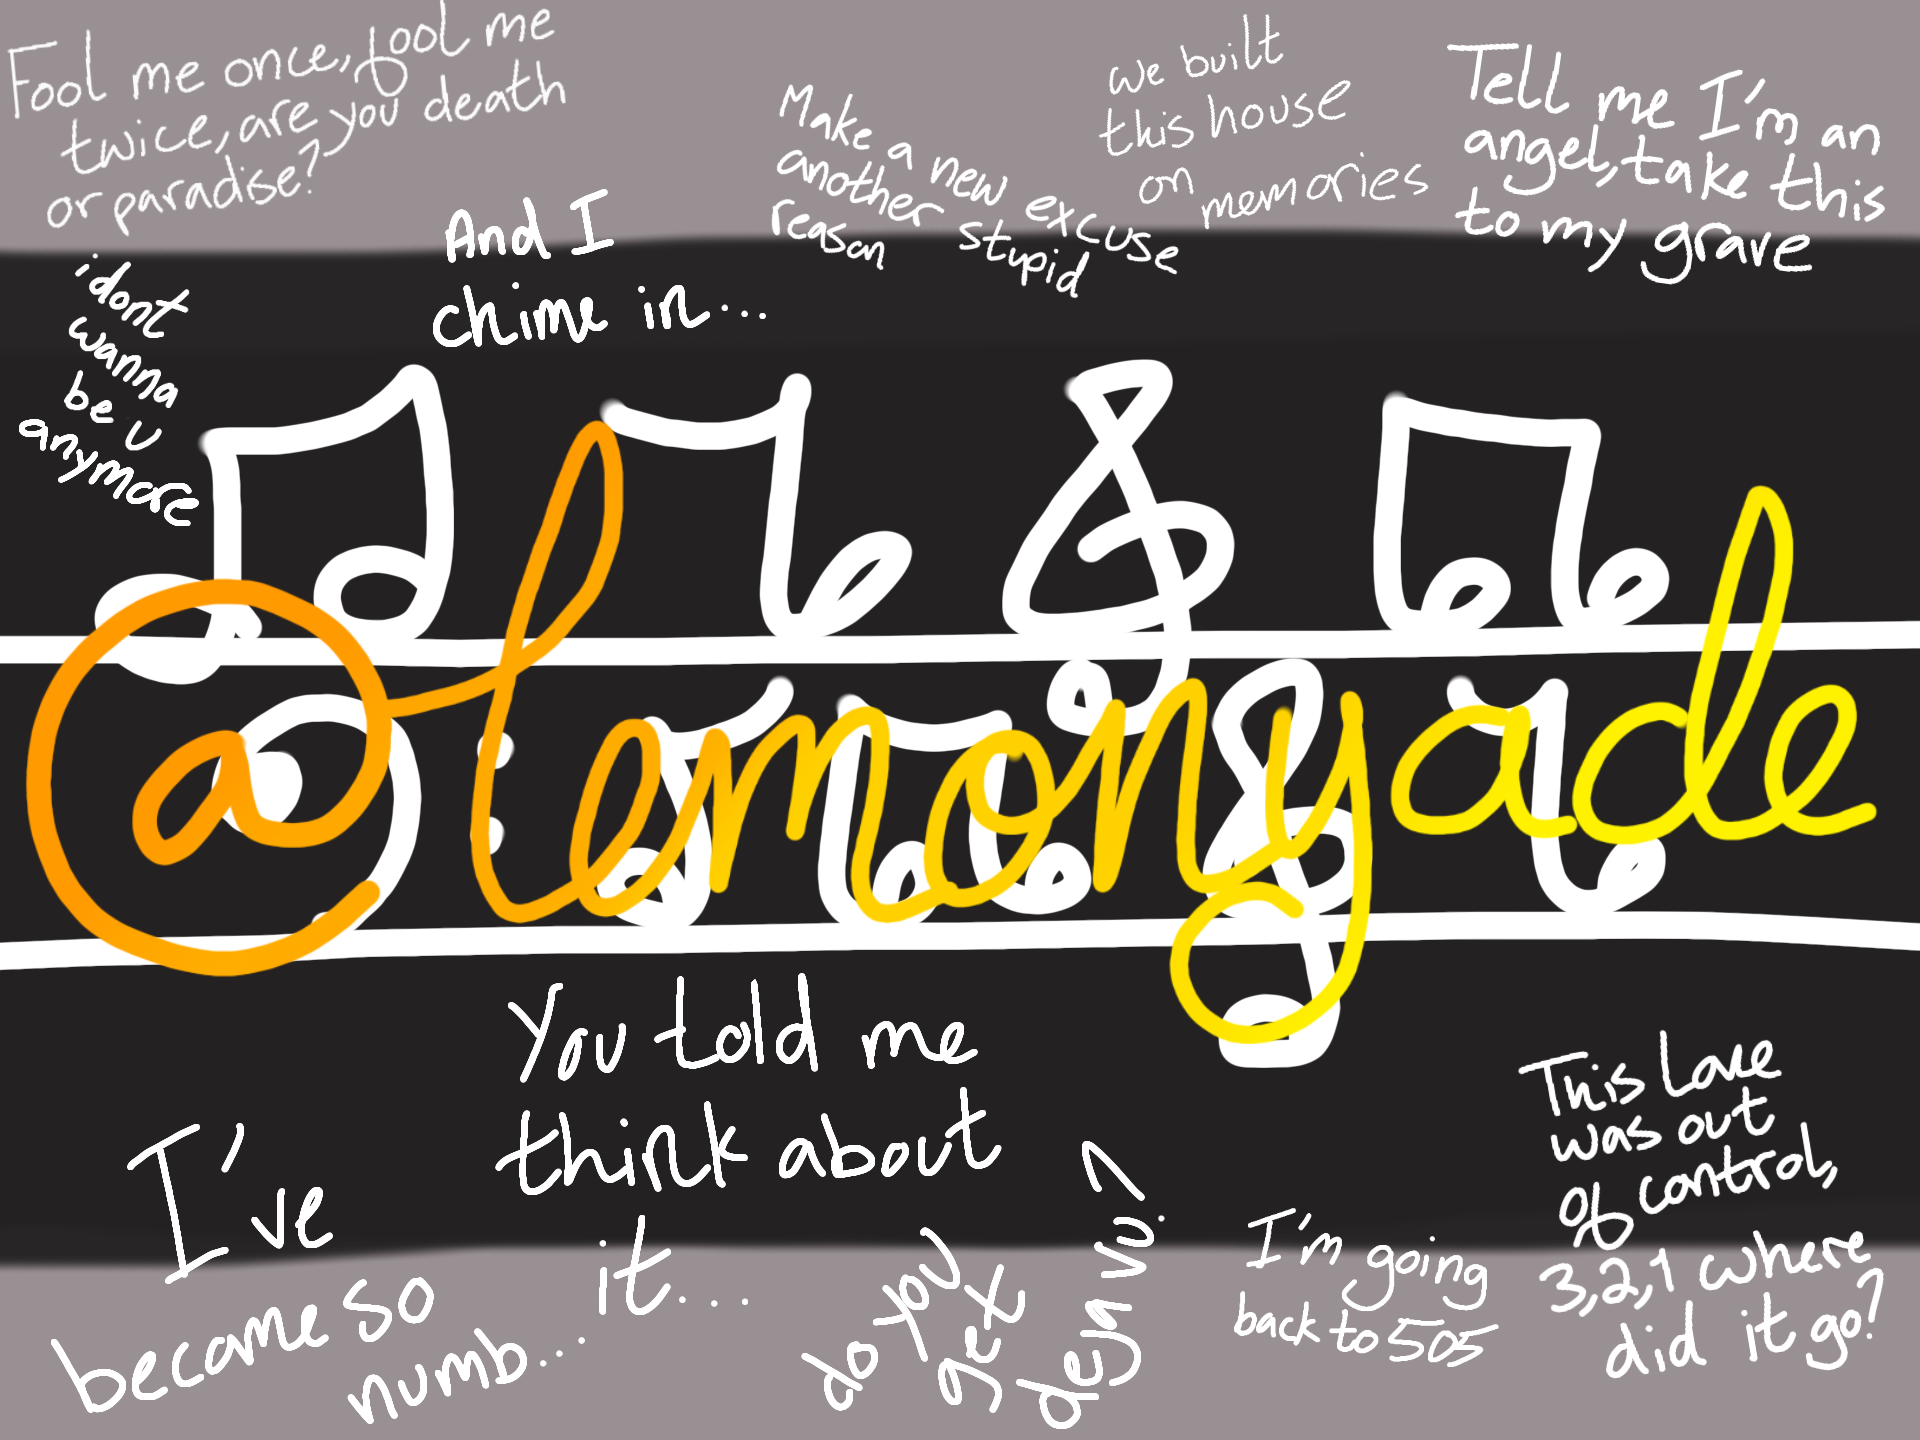 Fool me once, fool me
twice, are you death
or paradise?
And I
chime in...
Make a new excuse
another stupid
reason
we built
this house
on memories
Tell me I'm an
angel, take this
to my grave
i dont
wanna
be u
anymore
@lemonyade
I've
become so
numb...
You told me
think about
it...
do you
get
deja vu?
I'm going
back to 505
This Love
was out
of control,
3,2,1 where
did it go?